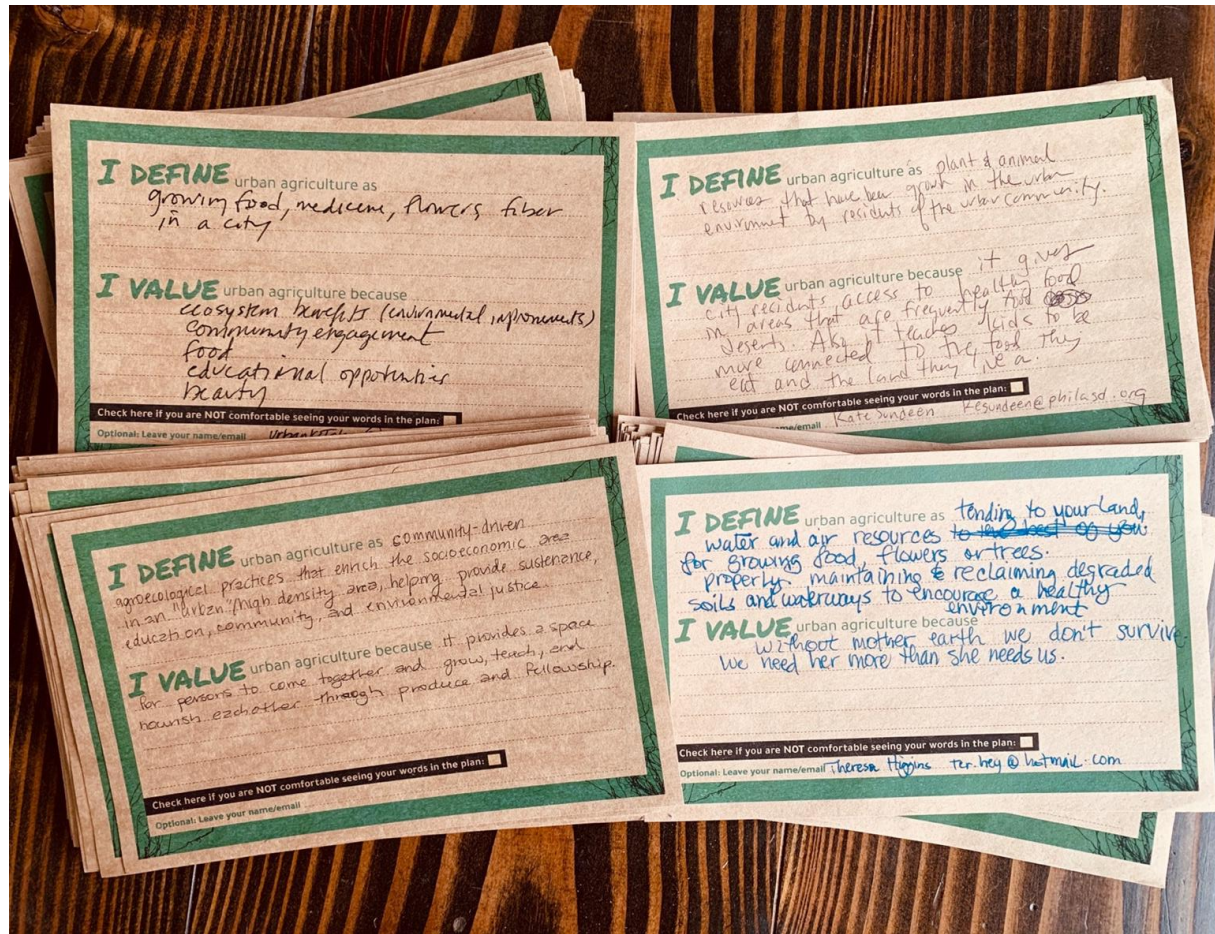 I DEFINE urban agriculture as
growing food, medicine, flowers fiber
in a city
I VALUE urban agriculture because
ecosystem benefits (environmental improvements)
community engagement
food
educational opportunities
beauty
Check here if you are NOT comfortable seeing your words in the plan:
Optional: Leave your name/email
I DEFINE urban agriculture as plant & animal
resources that have been grown in the urban
environment by residents of the urban community.
I VALUE urban agriculture because it gives
city residents access to healthy food
in areas that are frequently food
deserts. Also it teaches kids to be
more connected to the food they
eat and the land they live
Check here if you are NOT comfortable seeing your words in the plan:
me/email Kate Sundeen kesundeen@philasd.org
I DEFINE urban agriculture as community-driven
agroecological practices that enrich the socioeconomic area
in an "urban"/high density area, helping provide sustenance,
education, community, and environmental justice.
I VALUE urban agriculture because it provides a space
for persons to come together and grow, teach, and
nourish eachother through produce and fellowship.
Check here if you are NOT comfortable seeing your words in the plan:
Optional: Leave your name/email
I DEFINE urban agriculture as tending to your land,
water and air resources to
for growing food, flowers or trees.
properly maintaining & reclaiming degraded
soils and waterways to encourage a healthy
environment
I VALUE urban agriculture because
without mother earth we don't survive.
We need her more than she needs us.
Check here if you are NOT comfortable seeing your words in the plan:
Optional: Leave your name/email Theresa Higgins tzr.hey@hotmail.com